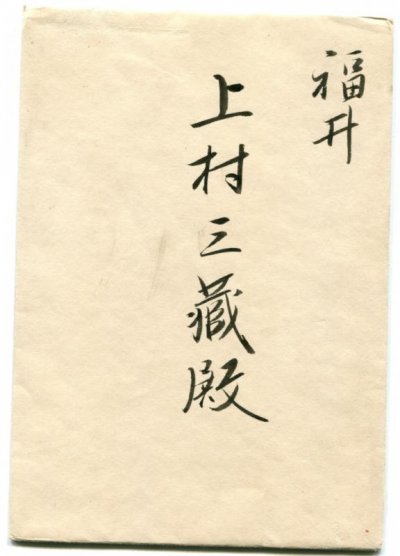 福井
上村三藏殿